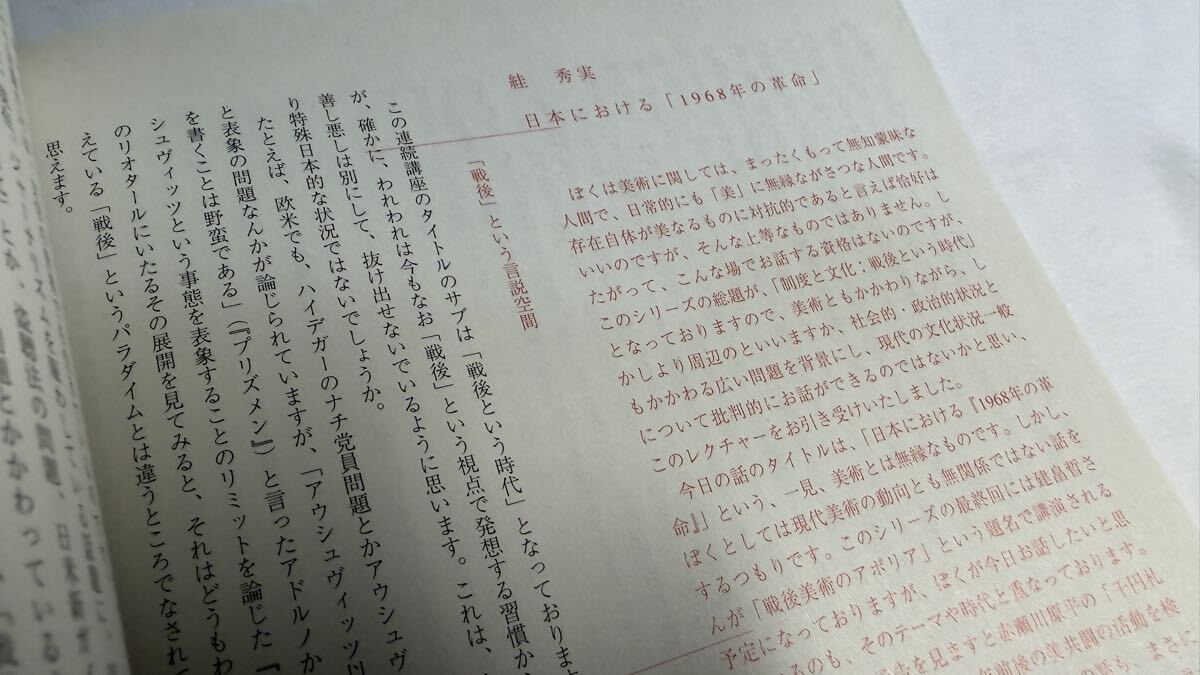 絓 秀実
日本における「1968年の革命」
ぼくは美術に関しては、まったくもって無知蒙昧な
人間で、日常的にも「美」に無縁ながさつな人間です。
存在自体が美なるものに対抗的であると言えば恰好は
いいのですが、そんな上等なものではありません。し
たがって、こんな場でお話する資格はないのですが、
このシリーズの総題が、「制度と文化:戦後という時代」
となっておりますので、美術ともかかわりながら、し
かしより周辺のといいますか、社会的・政治的状況と
もかかわる広い問題を背景にし、現代の文化状況一般
について批判的にお話ができるのではないかと思い、
このレクチャーをお引き受けいたしました。
今日の話のタイトルは、「日本における『1968年の革
命』」という、一見、美術とは無縁なものです。しかし、
ぼくとしては現代美術の動向とも無関係ではない話を
するつもりです。このシリーズの最終回には健畠哲さ
んが「戦後美術のアポリア」という題名で講演される
予定になっておりますが、ぼくが今日お話したいと思
るのも、そのテーマや時代と重なっております。
を見ますと赤瀬川原平の「千円札
年前後の美共闘の活動を検
も、まさに
「戦後」という言説空間
この連続講座のタイトルのサブは「戦後という時代」となっております
が、確かに、われわれは今もなお「戦後」という視点で発想する習慣か
善し悪しは別にして、抜け出せないでいるように思います。これは、
り特殊日本的な状況ではないでしょうか。
たとえば、欧米でも、ハイデガーのナチ党員問題とかアウシュヴ
と表象の問題なんかが論じられていますが、「アウシュヴィッツ以
を書くことは野蛮である」(『プリズメン』)と言ったアドルノか
シュヴィッツという事態を表象することのリミットを論じた『
のリオタールにいたるその展開を見てみると、それはどうもわ
えている「戦後」というパラダイムとは違うところでなされて
思えます。